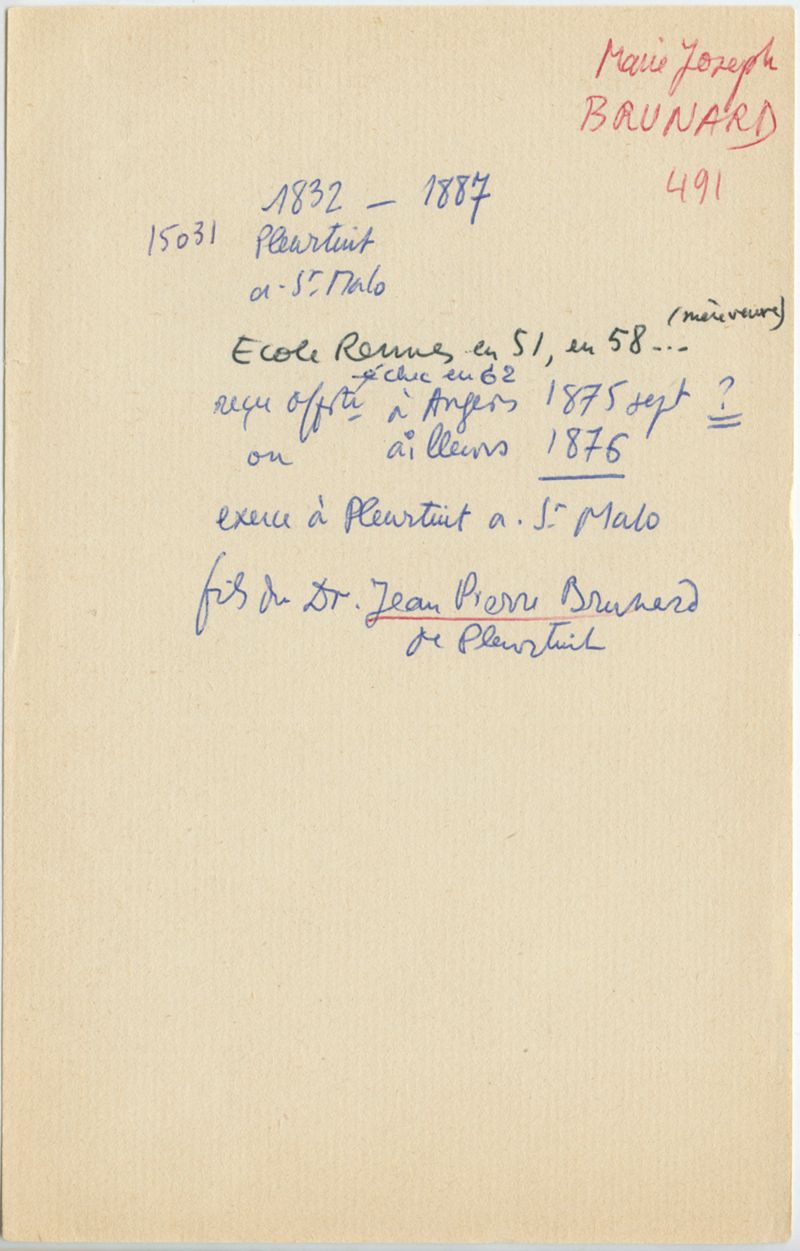 Marie Joseph
BRUNARD
491
1832 – 1887
15031 Pleurtuit
a. St Malo
Ecole Rennes en 51, en 58... (mère veuve)
échec en 62
reçu off. à Angers 1875 sept ?
ou ailleurs 1876
exerce à Pleurtuit a. St Malo
fils du Dr. Jean Pierre Brunard
de Pleurtuit